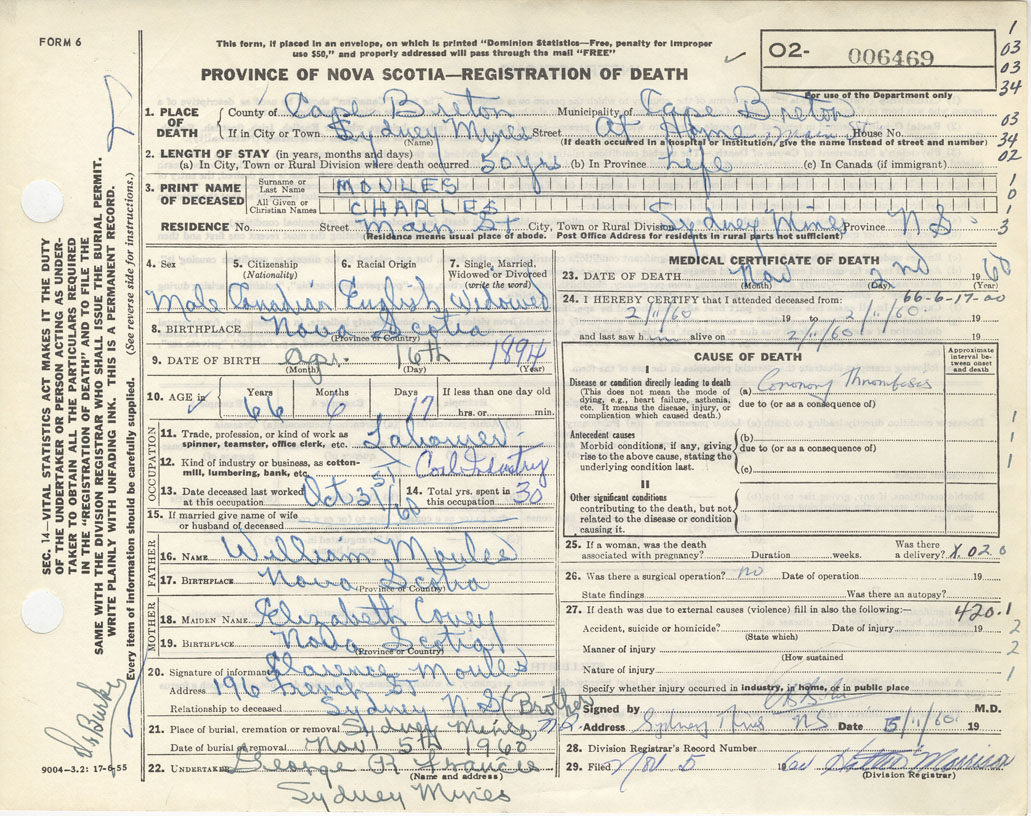 FORM 6
This form, if placed in an envelope, on which is printed "Dominion Statistics—Free, penalty for improper
use $50," and properly addressed will pass through the mail "FREE"
PROVINCE OF NOVA SCOTIA—REGISTRATION OF DEATH
O2- 006469
For use of the Department only
1
03
03
34
03
34
02
1
0
3
1. PLACE OF DEATH
County of Cape Breton Municipality of Cape Breton
If in City or Town Sydney Mines Street At Home Main St House No.
(Name) (If death occurred in a hospital or institution, give the name instead of street and number)
2. LENGTH OF STAY (in years, months and days)
(a) In City, Town or Rural Division where death occurred 50 yrs (b) In Province Life (c) In Canada (if immigrant)
3. PRINT NAME OF DECEASED
Surname or Last Name MOULES
All Given or Christian Names CHARLES
RESIDENCE No. Street Main St City, Town or Rural Division Sydney Mines Province N S
(Residence means usual place of abode. Post Office Address for residents in rural parts not sufficient)
4. Sex 5. Citizenship (Nationality) 6. Racial Origin 7. Single, Married, Widowed or Divorced (write the word)
Male Canadian English Widowed
8. BIRTHPLACE Nova Scotia
(Province or Country)
9. DATE OF BIRTH Apr. 16th 1894
(Month) (Day) (Year)
10. AGE in Years Months Days If less than one day old
66 6 17 hrs. or min.
OCCUPATION
11. Trade, profession, or kind of work as spinner, teamster, office clerk, etc. Labourer
12. Kind of industry or business, as cotton-mill, lumbering, bank, etc. Coal Industry
13. Date deceased last worked at this occupation Oct 31/60
14. Total yrs. spent in this occupation 30
15. If married give name of wife or husband of deceased
FATHER
16. NAME William Moules
17. BIRTHPLACE Nova Scotia
(Province or Country)
MOTHER
18. MAIDEN NAME Elizabeth Covey
19. BIRTHPLACE Nova Scotia
(Province or Country)
20. Signature of informant Clarence Moules
Address 196 French St
Sydney N S
Relationship to deceased Brother
21. Place of burial, cremation or removal Sydney Mines N.S.
Date of burial or removal Nov 5th 1960
22. UNDERTAKER George R Francis
(Name and address)
Sydney Mines
MEDICAL CERTIFICATE OF DEATH
23. DATE OF DEATH Nov 2nd 1960
(Month) (Day) (Year)
66-6-17-00
24. I HEREBY CERTIFY that I attended deceased from:
2/11/60 19 to 2/11/60 19
and last saw him alive on 2/11/60 19
CAUSE OF DEATH
Approximate interval between onset and death
I
Disease or condition directly leading to death
(This does not mean the mode of dying, e.g., heart failure, asthenia, etc. It means the disease, injury, or complication which caused death.)
(a) Coronary Thrombosis
due to (or as a consequence of)
Antecedent causes
Morbid conditions, if any, giving rise to the above cause, stating the underlying condition last.
(b)
due to (or as a consequence of)
(c)
II
Other significant conditions
contributing to the death, but not related to the disease or condition causing it.
1
1
1
25. If a woman, was the death associated with pregnancy? Duration weeks. Was there a delivery? X 02 0
26. Was there a surgical operation? no Date of operation 19
State findings Was there an autopsy?
27. If death was due to external causes (violence) fill in also the following:— 420.1
Accident, suicide or homicide? Date of injury 19 2
(State which)
Manner of injury 2
(How sustained
Nature of injury 1
Specify whether injury occurred in industry, in home, or in public place
Signed by M.D.
Address Sydney Mines NS Date 5/11/60 19
28. Division Registrar's Record Number
29. Filed Nov. 5 19
(Division Registrar)
SEC. 14—VITAL STATISTICS ACT MAKES IT THE DUTY
OF THE UNDERTAKER OR PERSON ACTING AS UNDER-
TAKER TO OBTAIN ALL THE PARTICULARS REQUIRED
IN THE "REGISTRATION OF DEATH" AND FILE THE
SAME WITH THE DIVISION REGISTRAR WHO SHALL ISSUE THE BURIAL PERMIT.
WRITE PLAINLY WITH UNFADING INK. THIS IS A PERMANENT RECORD.
Every item of information should be carefully supplied. (See reverse side for instructions.)
9004-3.2: 17-6-55